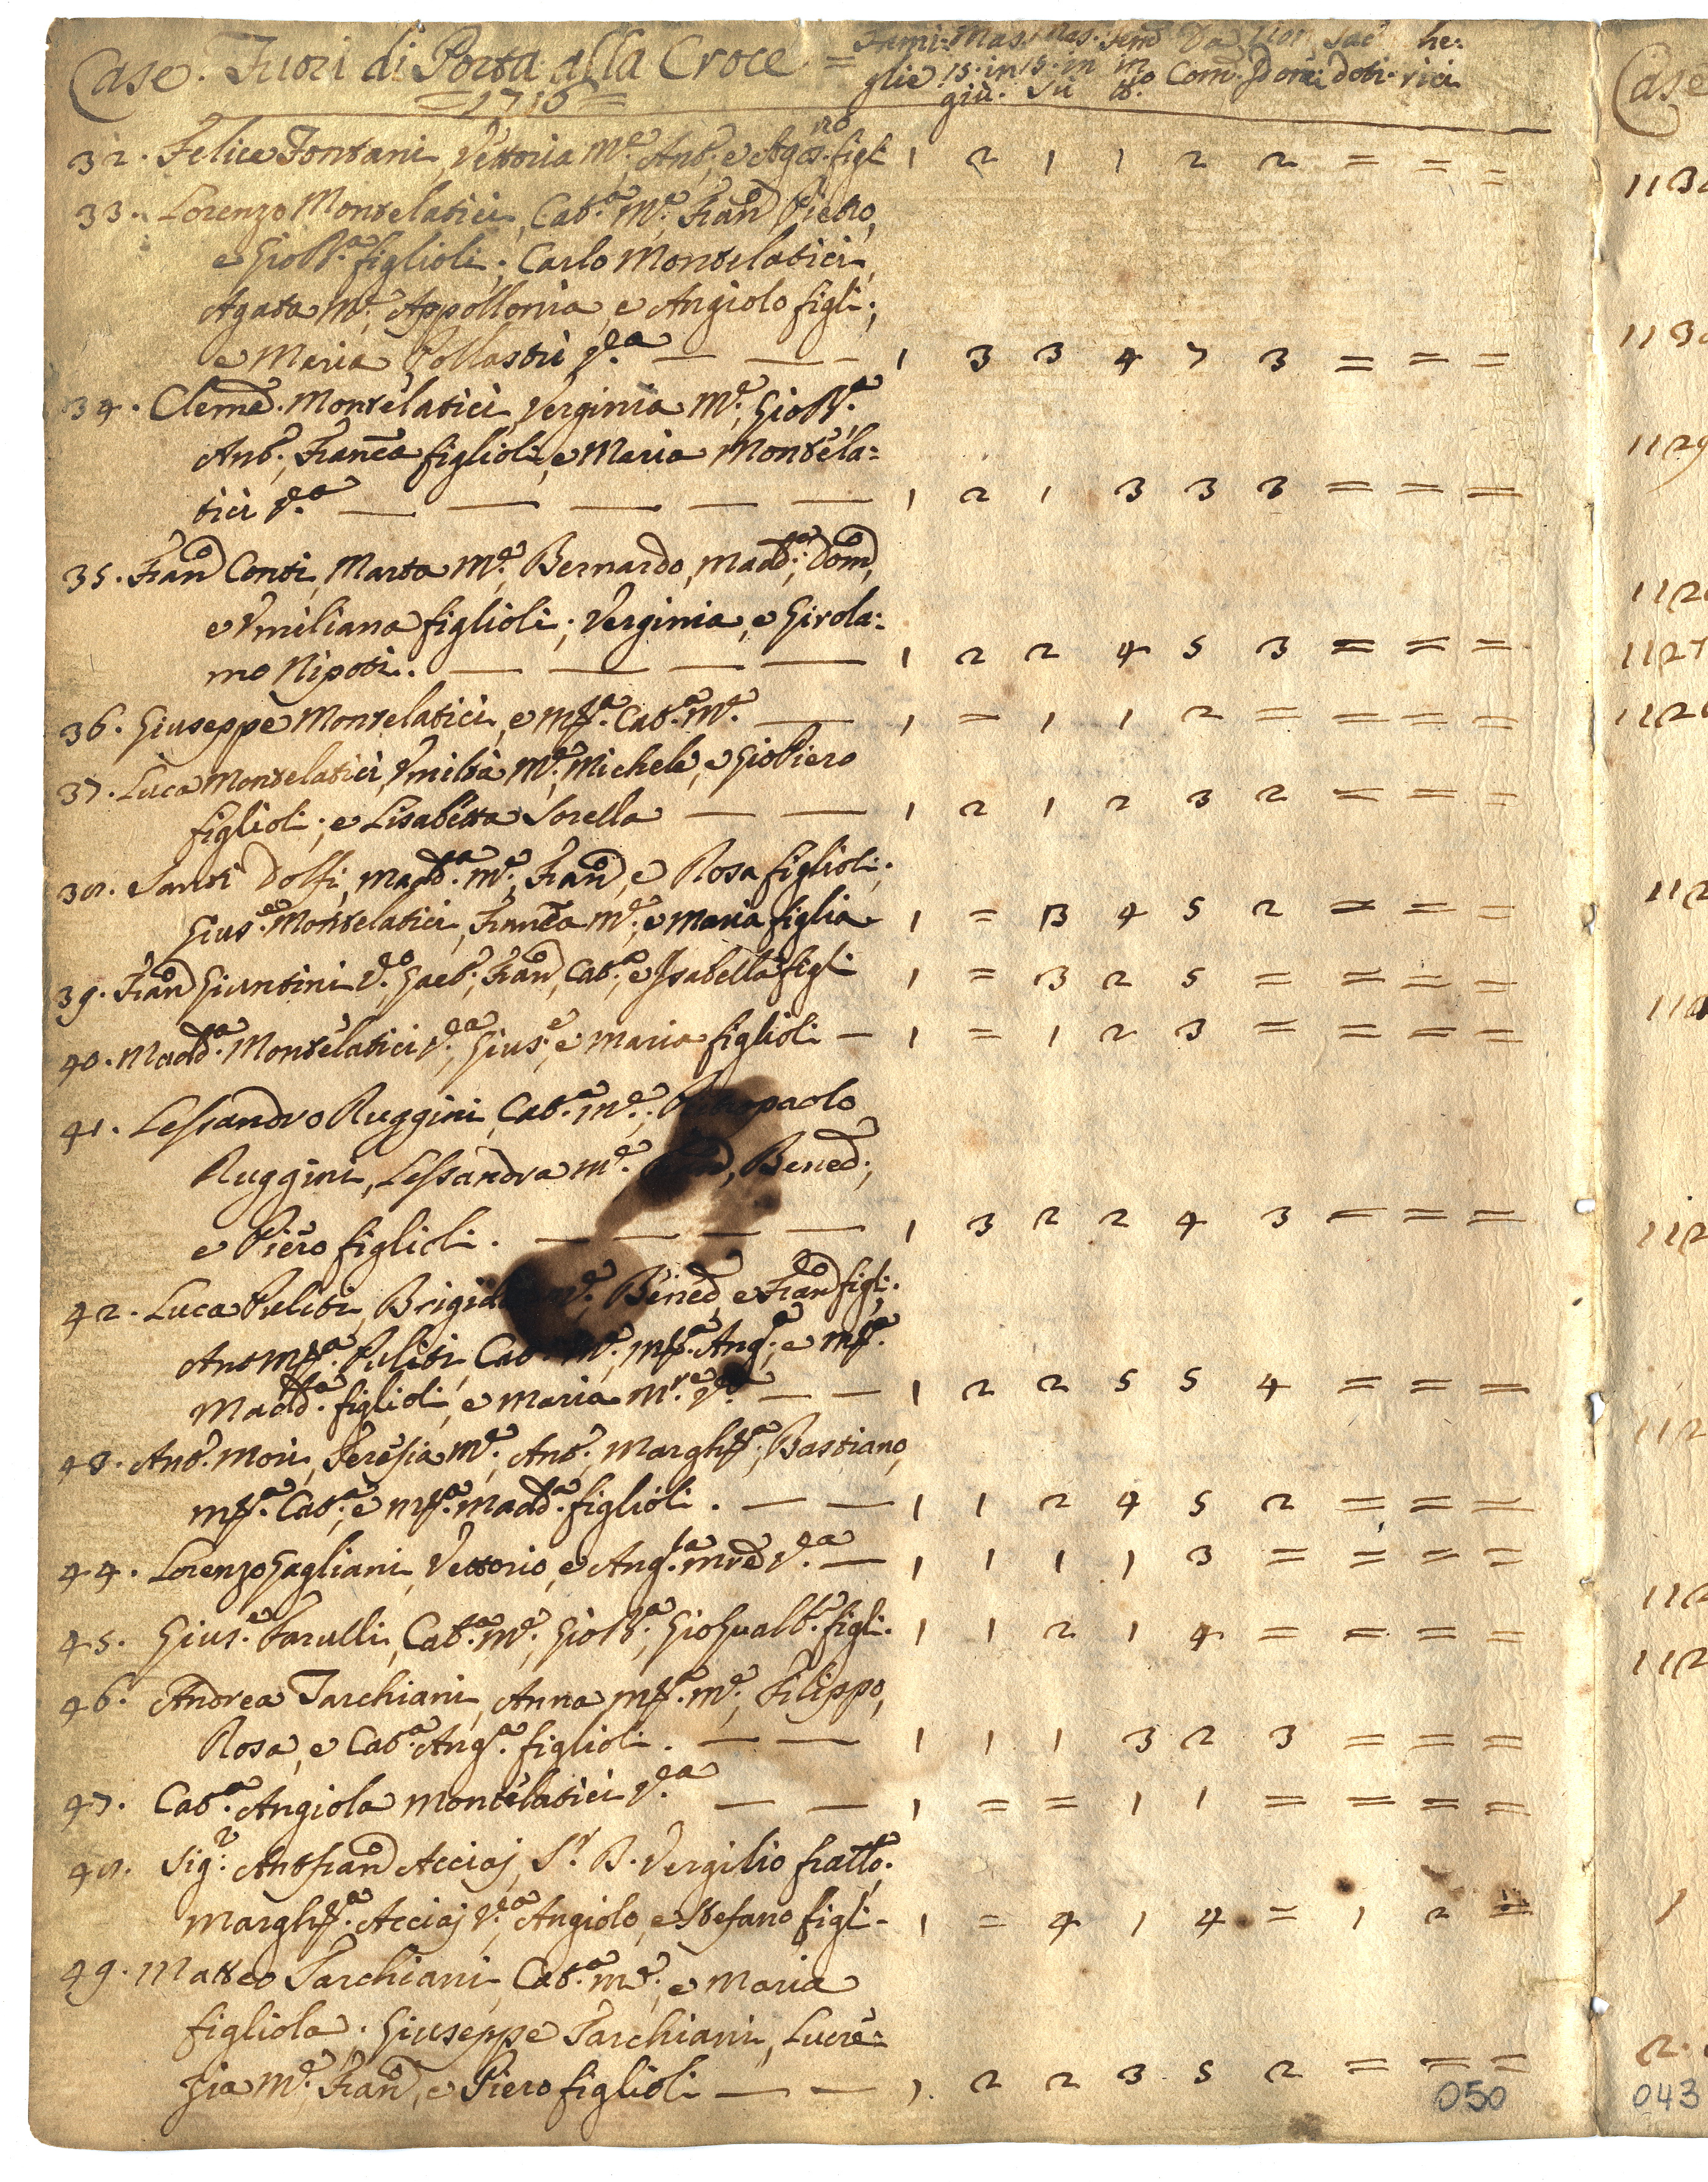 Case. Fuori di Porta alla Croce =
= 1716 =
Fami: Mas. Mas. Fem. Da Non Sac he:
glie 15. in 15. in in Com. Com: doti. rici
giù. Sù 
32. Felice Fontani, Vettoria M.e, Ant.o, e Agos.no figli 1 2 1 1 2 2 = = =
33. Lorenzo Montelatici, Cat.a M.e, Fran.o Pietro,
e Gio B.a figlioli; Carlo Montelatici,
Agata M.e, Appollonia, e Angiolo figli;
e Maria Pollastri V.a — — — 1 3 3 4 7 3 = = =
34. Clemē. Montelatici, Verginia M.e, Gio B.a
Ant.o, Franc.a figlioli, e Maria Montela:
tici V.a — — — — — 1 2 1 3 3 3 = = =
35. Fran.o Conti, Marta M.e, Bernardo, Madd.a, Dom.o,
e Umiliana figlioli; Verginia, e Girola:
mo Nipoti. — — — — 1 2 2 4 5 3 = = =
36. Giuseppe Montelatici, e M.a Cat.a M.e — 1 = 1 1 2 = = = =
37. Luca Montelatici, Umiltà M.e, Michele, e Gio Piero
figlioli; e Lisabetta Sorella — — 1 2 1 2 3 2 = = =
38. Santi Dolfi, Madd.a M.e, Fran.o, e Rosa figlioli;
Gius.e Montelatici, Franc.a M.e, e Maria figlia 1 = 3 4 5 2 = = =
39. Fran.o Giuntini V.o, Gaet.o, Fran.o, Cat.a, e Isabella figli 1 = 3 2 5 = = = =
40. Madd.a Montelatici V.a, Gius.e e Maria figlioli — 1 = 1 2 3 = = = =
41. Lessandro Ruggini, Cat.a M.e; Pietropaolo
Ruggini, Lessandra M.e, Bened.o,
e Piero figlioli. — — — — 1 3 2 2 4 3 = = =
42. Luca Puliti, Brigida M.e, Bened.o, e Fran.o figli.
Ant M.a Puliti, Cat.a M.e, M.a Ang.a, e M.a
Madd.a figlioli, e Maria M.re V.a — — 1 2 2 5 5 4 = = =
43. Ant.o Mori, Teresia M.e, Ant.o, Margh.a, Bastiano,
M.a Cat.a, e M.a Madd.a figlioli. — — 1 1 2 4 5 2 = = =
44. Lorenzo Gagliani, Vettorio, e Ang.la Mre V.a — 1 1 1 1 3 = = = =
45. Gius.e Farulli, Cat.a M.e, Gio B.a, Gio Gualb.o figli. 1 1 2 1 4 = = = =
46. Andrea Tarchiani, Anna M.a M.e, Filippo,
Rosa, e Cat.a Ang.a figlioli. — — 1 1 1 3 2 3 = = =
47. Cat.a Angiola Montelatici V.a — — 1 = = 1 1 = = = =
48. Sig.r Ant Fran.o Acciaj, S.r B. Vergilio fratto.
Margh.a Acciaj V.a, Angiolo, e Stefano figli- 1 = 4 1 4 = 1 2 =
49. Matteo Tarchiani, Cat.a M.e, e Maria
figliola. Giuseppe Tarchiani, Lucre:
zia M.e, Fran.o, e Piero figlioli — — 1. 2 2 3 5 2 = = =
050
Case
1127
2.
043